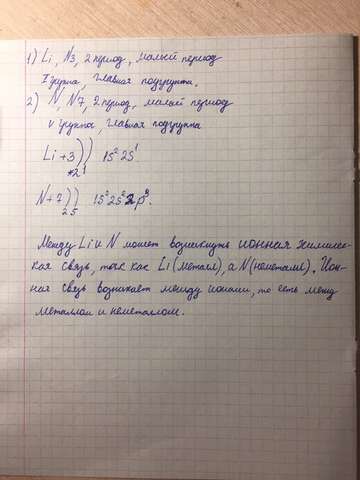 1) Li, N3, 2 период, малый период
I группа, главная подгруппа.
2) N, N7, 2 период, малый период
V группа, главная подгруппа
Li +3 ) ) 1s² 2s¹
2 1
N +7 ) ) 1s² 2s² 2p³.
2 5
Между Li и N может возникнуть ионная химичес-
кая связь, так как Li (металл), а N (неметалл). Ион-
ная связь возникает между ионами, то есть межд
металлом и неметаллом.